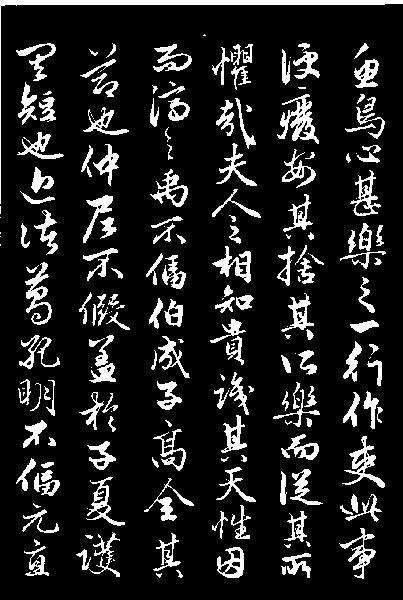 魚鳥心甚樂之一行作吏此事
便廢安其捨其所樂而從其所
懼哉夫人之相知貴識其天性因
而濟之禹不偪伯成子高全其
節也仲尼不假蓋於子夏護
其短也近諸葛孔明不偪元直